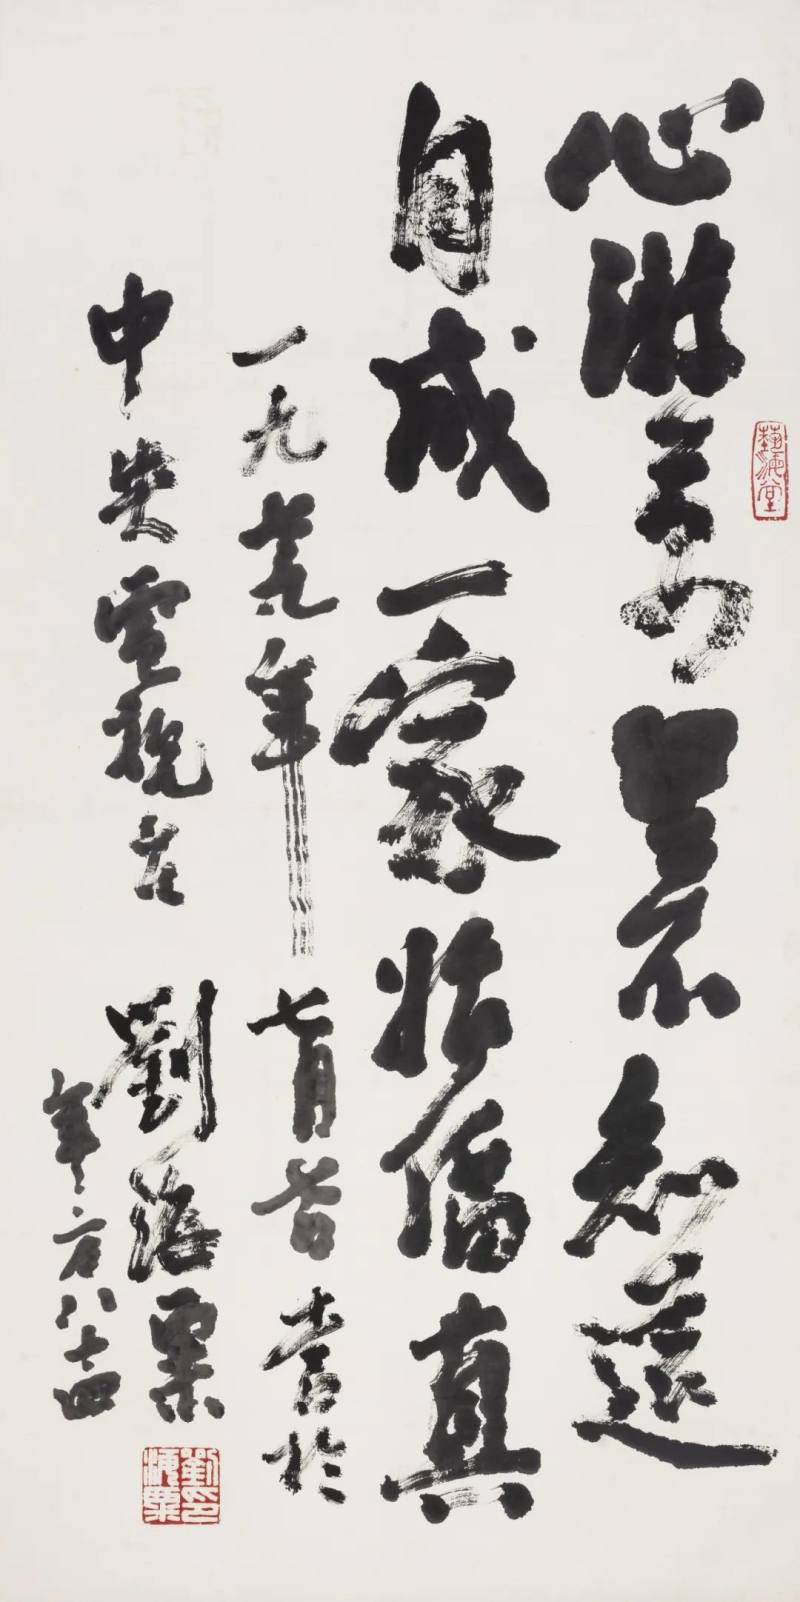 藝海堂
心游萬里不知遠
自成一家始偪真
一九七九年七月廿日書於
中央電視台 劉海粟
年方八十四
劉印海粟